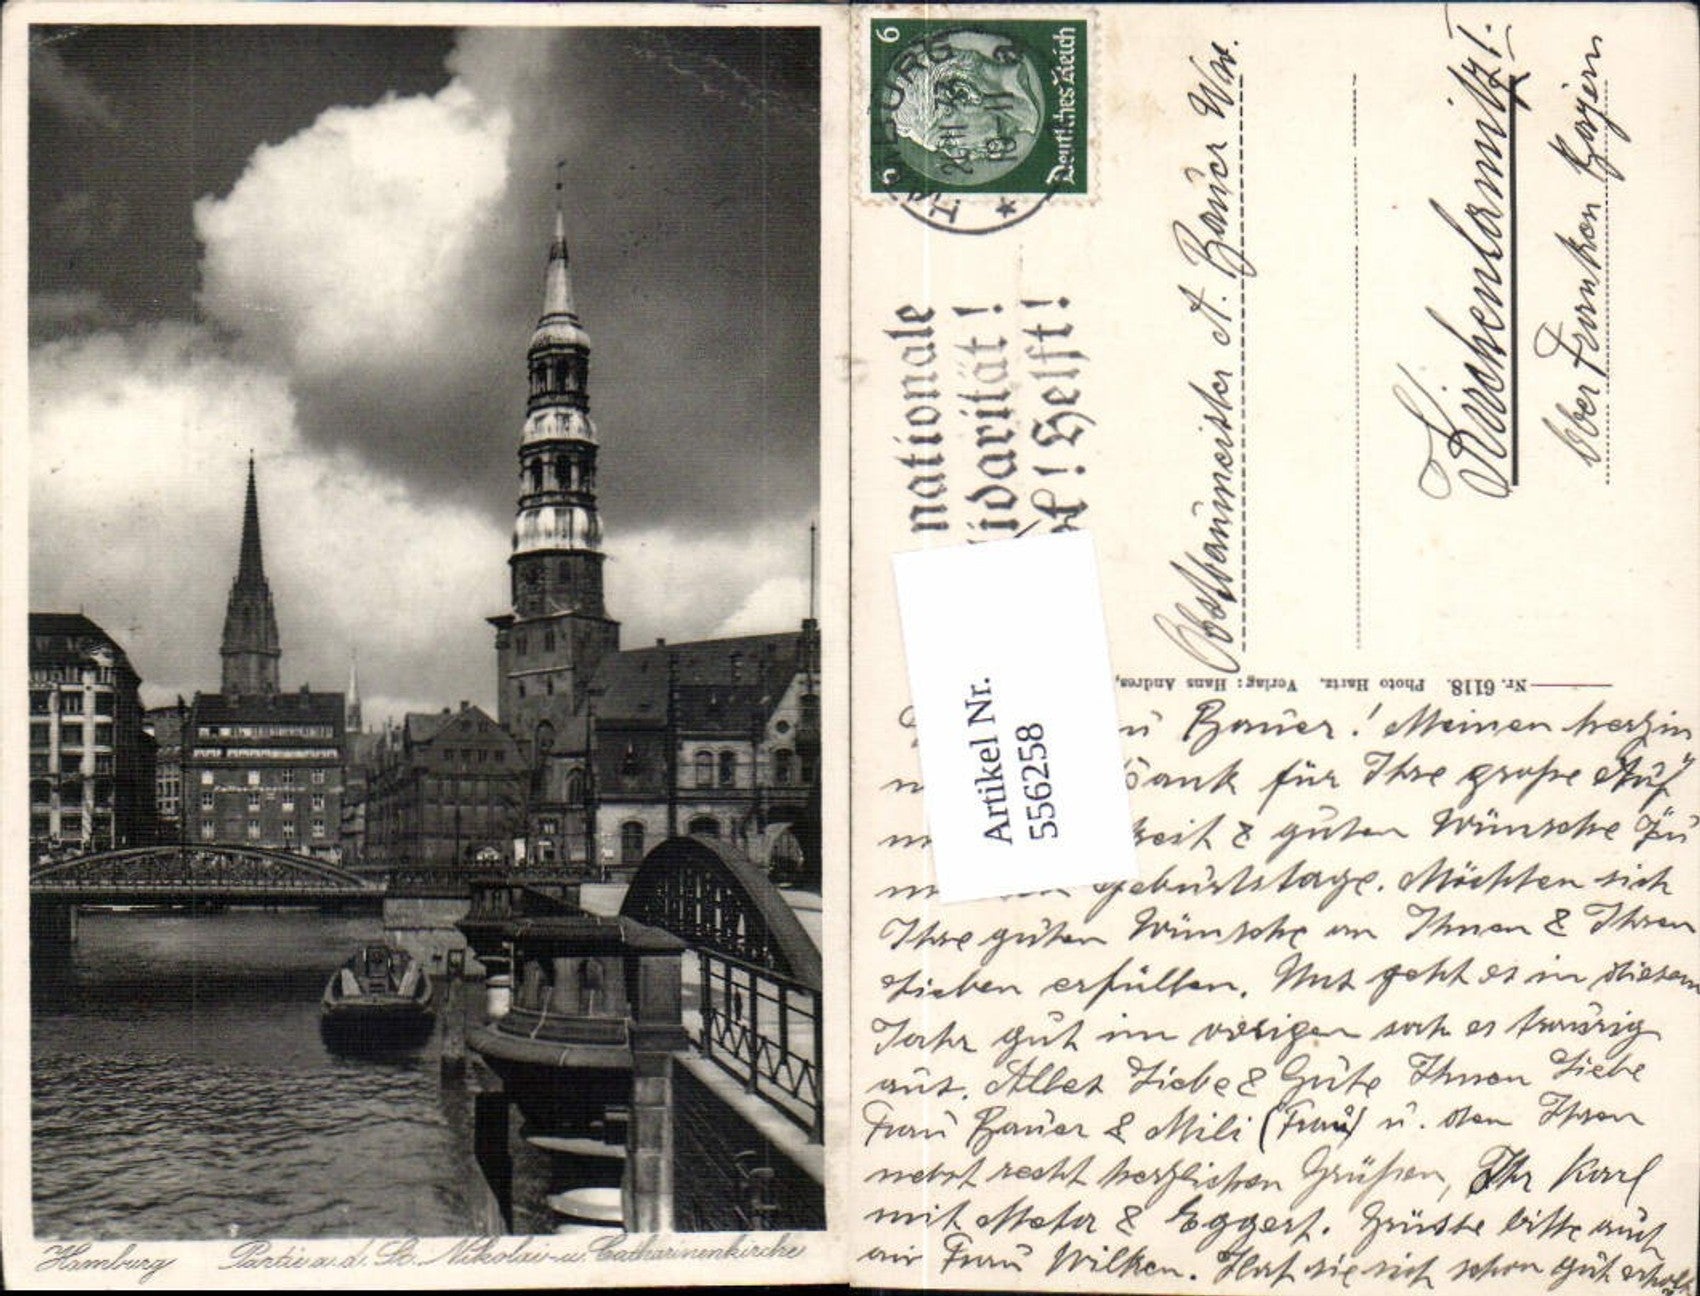 Hamburg Partie a. d. St. Nikolai- u. Catharinenkirche
6
Deutsches Reich
26.11.33
10-11
nationale
idarität!
! Helft!
Artikel Nr.
556258
Obstbaumeister A. Bauer Ww.
Kirchenlamitz I.
Ober Franken Bayern
Nr. 6118. Photo Hartz. Verlag: Hans Andres,
Bauer! Meinen herzin
Dank für Ihre große Auf
keit & guten Wünsche zu
Geburtstage. Möchten sich
Ihre guten Wünsche an Ihnen & Ihren
Lieben erfüllen. Uns geht es in diesem
Jahr gut im vorigen sah es traurig
aus. Alles Liebe & Gute Ihnen Liebe
Frau Bauer & Mili (Frau) u. den Ihren
nebst recht herzlichen Grüßen, Ihr Karl
mit Meta & Eggert. Grüsse bitte auch
an Frau Wilken. Hat sie sich schon gut erholt